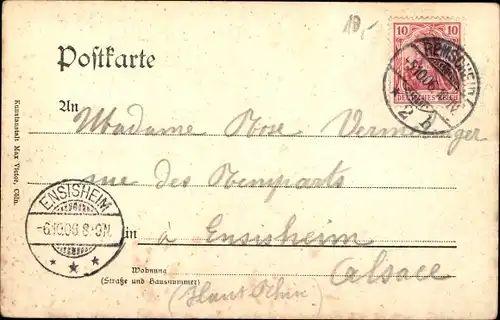 10,-
Postkarte
10 10
DEUTSCHES REICH
REMSCHEID 1
2 b
An
Madame Rose
rue des Remparts
ENSISHEIM
-6.10.06. 8-9N.
* * *
in à Ensisheim
Alsace
Wohnung
(Straße und Hausnummer)
(Haut Rhin)
Kunstanstalt Max Victor, Cöln.